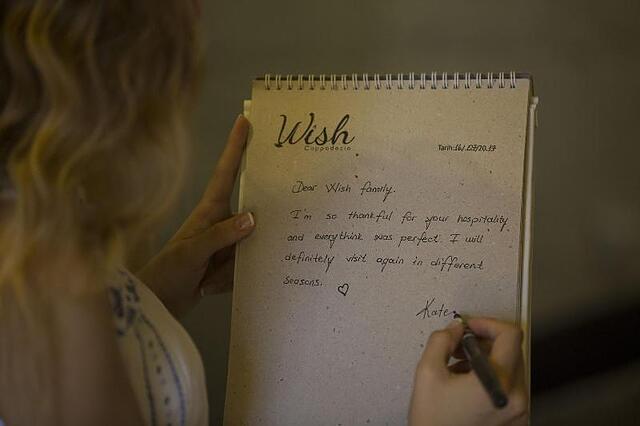 Wish
Cappadocia
Tarih:16/./20.17
Dear Wish family.
I'm so thankful for your hospitality
and everythink was perfect. I will
definitely visit again in different
seasons. ♡
Kate